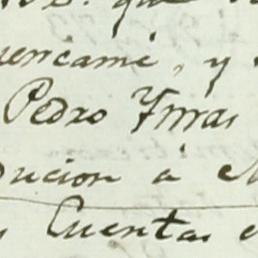 que
uencamé, y
Pedro Ymas
ducion á
Cuentas